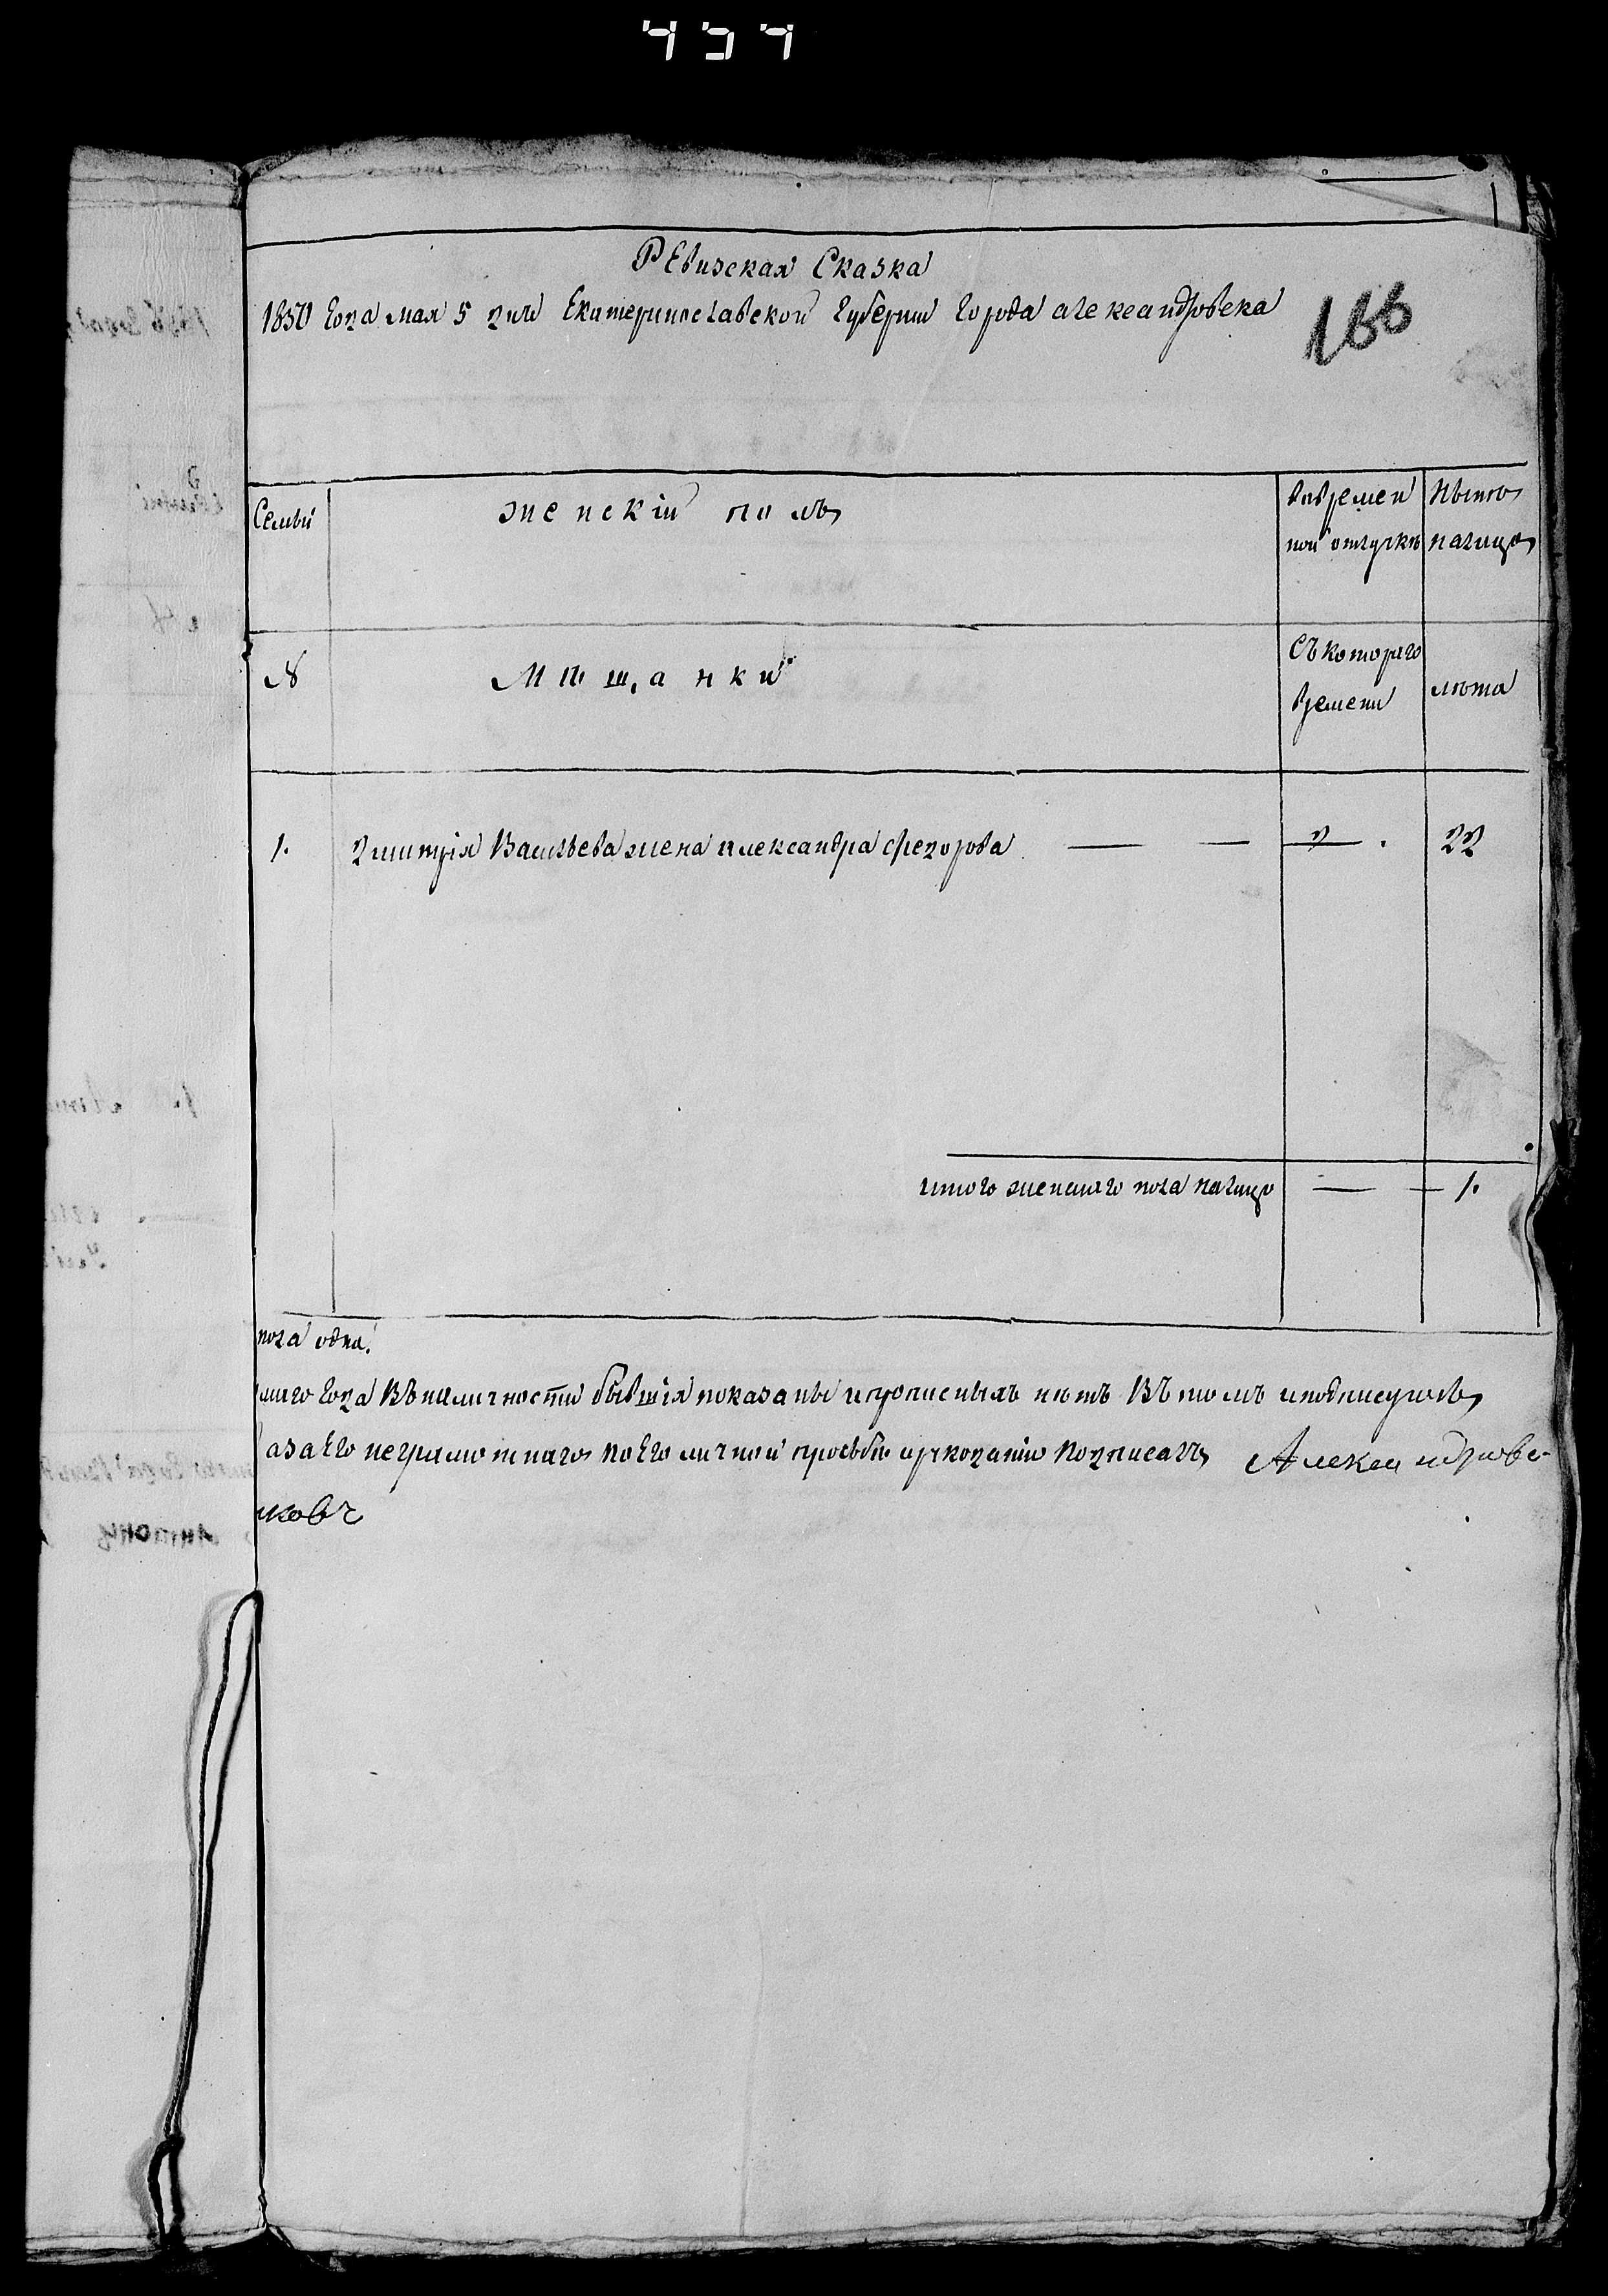 434
Ревизская Сказка
1850 года мая 5 дня Екатеринославской Губернии города александровска
166
Семьи
женскій полъ
вовремен
ной отлучкѣ
Нынѣ
налицо
№
Мѣщанки
Съ котораго
времени
лѣта
1. Дмитрія Васильева жена александра федорова — — — 22
итого женскаго пола налицо — 1.
пола одна.
маго года Въ наличности бывшія показаны и прописныхъ нѣтъ Въ томъ и подписуюсь
а за Его неграмотнаго по Его личной просьбѣ и рукоданію подписалъ Александровс
ковъ